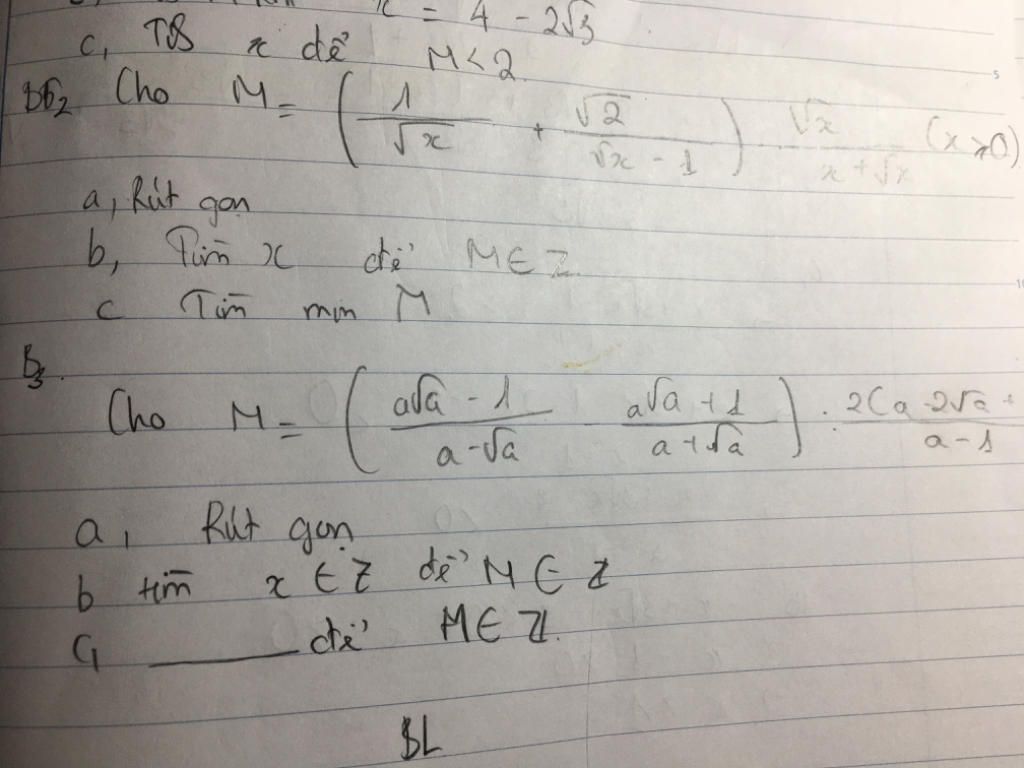 x = 4 - 2√3
c, TÌM x để M < 2
B2 Cho M = ( 1/√x + √2/(√x - 1) ) · √x/(x + √x) (x ≥ 0)
a, Rút gọn
b, Tìm x để M ∈ Z
c Tìm min M
B3.
Cho M = ( (a√a - 1)/(a - √a) - (a√a + 1)/(a + √a) ) : 2(a - 2√a +/(a - 1)
a, Rút gọn
b tìm x ∈ Z để M ∈ Z
c, ______ để M ∈ Z.
BL